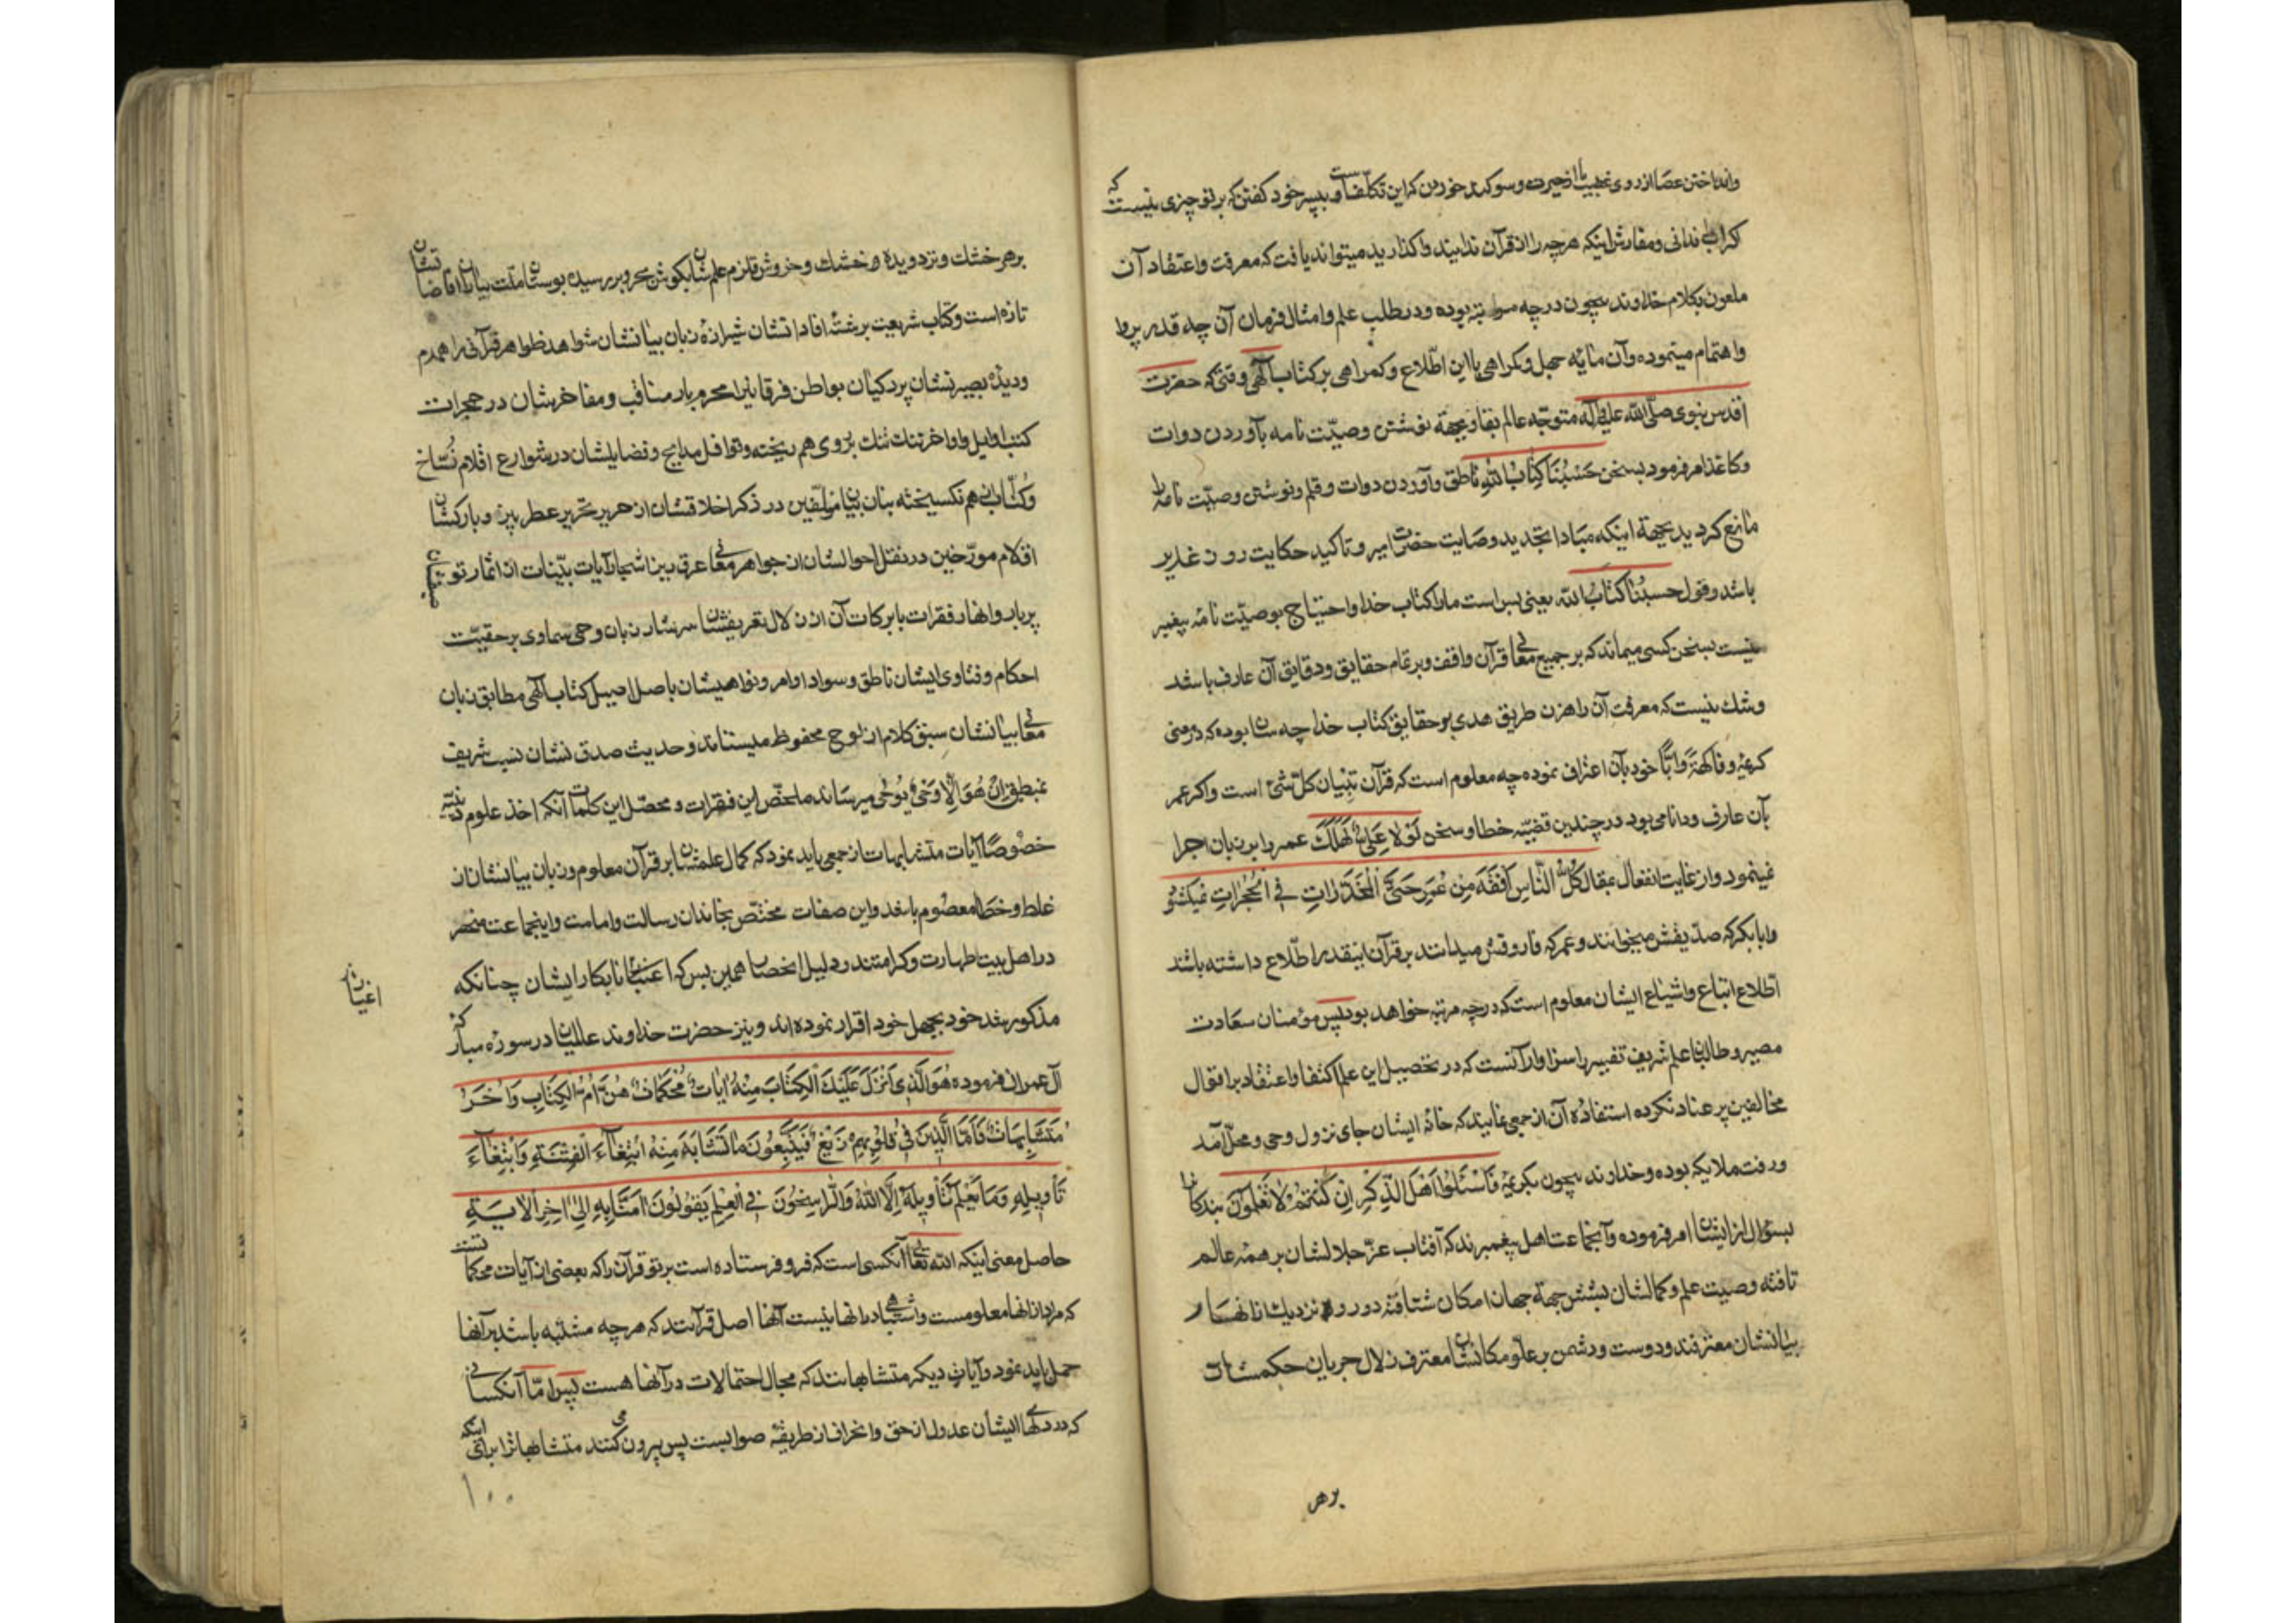 وانداختن عصا از روی غضب یا از حیرت و سوکند خوردن که این تکلفست و بپسر خود کفتن که بر تو چیزی نیست که
کر اب ندانی و مفارش اینکه هرچه را از قرآن ندانید واکذارید میتواند یافت که معرفت و اعتقاد آن
ملعون بکلام خداوند بیچون در چه مرتبه بوده و در طلب علم و امتثال فرمان آن چه قدر پروا
و اهتمام مینموده و آن مایه جهل و کمراهی با این اطلاع و کمراهی بر کتاب آلهی وقتی که حضرت
اقدس نبوی صلّی الله علیه و آله متوجّه عالم بقا و بجهة نوشتن وصیّت نامه بآوردن دوات
و کاغذ امر فرمود بسخن حَسْبُنَا کِتابُ اللّهِ ناطق و آوردن دوات و قلم و نوشتن وصیّت نامه را
مانع کردید بجهة اینکه مبادا تجدید وصایت حضرت امیر و تاکید حکایت روز غدیر
باشد و قول حسبُنا کتابُ اللّه یعنی بس است مارا کتاب خدا و احتیاج بوصیّت نامهٔ پیغمبر
نیست بسخن کسی میماند که بر جمیع معانی قرآن واقف و بر تمام حقایق و دقایق آن عارف باشد
و شك نیست که معرفت آن راهزن طریق هدی بر حقایق کتاب خدا چه سان بوده که در معنی
کریمهٔ وفاکهةً وابّاً خود بآن اعتراف نموده چه معلوم است که قرآن تبیان کلّ شیء است و اکر عمر
بآن عارف و دانا می بود در چندین قضیّه خطا و سخن لَولا عَلِیٌّ لَهَلَكَ عمر را بر زبان اجرا
نمینمود و از غایت انفعال بمقال کُلُّ النّاسِ اَفقَهُ مِن عُمَر حَتیَّ الْمُخَدَّراتِ فِی الْحُجُراتِ نمیکشود
و ابابکر که صدّیقش میخوانند و عمر که فاروقش میدانند بر قرآن اینقدر اطّلاع داشته باشند
اطّلاع اتباع و اشیاع ایشان معلوم است که در چه مرتبه خواهد بود پس مؤمنان سعادت
مصیر و طالبان علم شریف تفسیر را سزاوار آنست که در تحصیل این علم اکتفا و اعتقاد بر اقوال
مخالفین پر عناد نکرده استفادهٔ آن از جمعی نمایند که خانهٔ ایشان جای نزول وحی و محلّ آمد
و رفت ملایکه بوده و خداوند بیچون بکریمهٔ فَاسْئَلُوا اَهْلَ الذِّکْرِ اِنْ کُنْتُمْ لا تَعْلَمُونَ بندکانرا
بسؤال از ایشان امر فرموده و آنجماعت اهل پیغمبرند که آفتاب عزّ جلالشان بر همهٔ عالم
تافته وصیت علم و کمالشان بشش جهة جهان امکان شتافته دور و نزدیك از انهار
بیانشان مغترفند و دوست و دشمن بر علوّ مکانشان معترف زلال جریان حکمتشان
برهر
برهر خشك و تر دویده و خشك و خروش قلزم علمشان بکوش بحر و بر رسیده بوستان ملّت بباران افاضاتشان
تازه است و کتاب شریعت برشتهٔ افاداتشان شیرازه زبان بیانشان شواهد ظواهر قرآنی را همدم
و دیدهٔ بصیرتشان پردکیان بواطن فرقانیرا محرم بار مناقب و مفاخرشان در حجرات
کتب اوایل و اواخر تنك تنك بروی هم ریخته و قوافل مدایح و فضایلشان در شوارع اقلام نُسّاخ
و کُتّاب از هم نکسیخته بنان بیان مؤلّفین در ذکر اخلاقشان از حریر تحریر عطر بیز و بارکشان
اقلام مورّخین در نقل احوالشان از جواهر معانی عرق ریز اشجار آیات بیّنات از اثمار توصیفشان
پربار و انهار فقرات بابرکات آن از زلال تعریفشان سرشار زبان وحی سماوی بر حقیّت
احکام و فتاوی ایشان ناطق و سواد اوامر و نواهیشان باصل اصیل کتاب آلهی مطابق زبان
معانی بیانشان سبق کلام از لوح محفوظ میستاند و حدیث صدق نشان نسبت شریف
بمنطوق اِنْ هُوَ اِلّا وَحْیٌ یُوحی میرساند ملخّص این فقرات و محصّل این کلمات آنکه اخذ علوم دینیّه
خصُوصًا آیات متشابهات از جمعی باید نمود که کمال علمشان بر قرآن معلوم و زبان بیانشان از
غلط و خطا معصُوم باشد و این صفات مختصّ بخاندان رسالت و امامت و اینجماعت منحصر
در اهل بیت طهارت و کرامتند و دلیل انحصار همین بس که اعیان نابکار ایشان چنانکه
مذکور شد خود بجهل خود اقرار نموده اند و نیز حضرت خداوند عالمیان در سورهٔ مبارکهٔ
آل عمران فرموده هُوَ الَّذِی اَنْزَلَ عَلَیْكَ الْکِتابَ مِنْهُ ایاتٌ مُحْکَماتٌ هُنَّ اُمُّ الْکِتابِ وَاُخَرُ
مُتَشابِهاتٌ فَاَمَّا الَّذِینَ فِی قُلُوبِهِمْ زَیْغٌ فَیَتَّبِعُونَ ما تَشابَهَ مِنْهُ ابْتِغاءَ الْفِتْنَةِ وَابْتِغاءَ
تَأوِیلِهِ وَما یَعْلَمُ تَأوِیلَهُ اِلَّا اللّهُ وَالرّاسِخُونَ فِی الْعِلْمِ یَقُولُونَ امَنّا بِهِ اِلی اخِرِ الْایَةِ
حاصل معنی اینکه اللّه تعالی آنکسی است که فرو فرستاده است بر تو قرآن را که بعضی از آیات محکماتست
که مراد از انها معلومست و اشتباهی در انها نیست آنها اصل قرآنند که هر چه مشتبه باشد بر آنها
حمل باید نمود و آیات دیکر متشابهاتند که مجال احتمالات در آنها هست پس امّا آنکسانی
که در دلهای ایشان عدول از حق و انحراف از طریقهٔ صوابست پس پیروی میکنند متشابهاترا برای اینکه
اعیان
۱۰۰